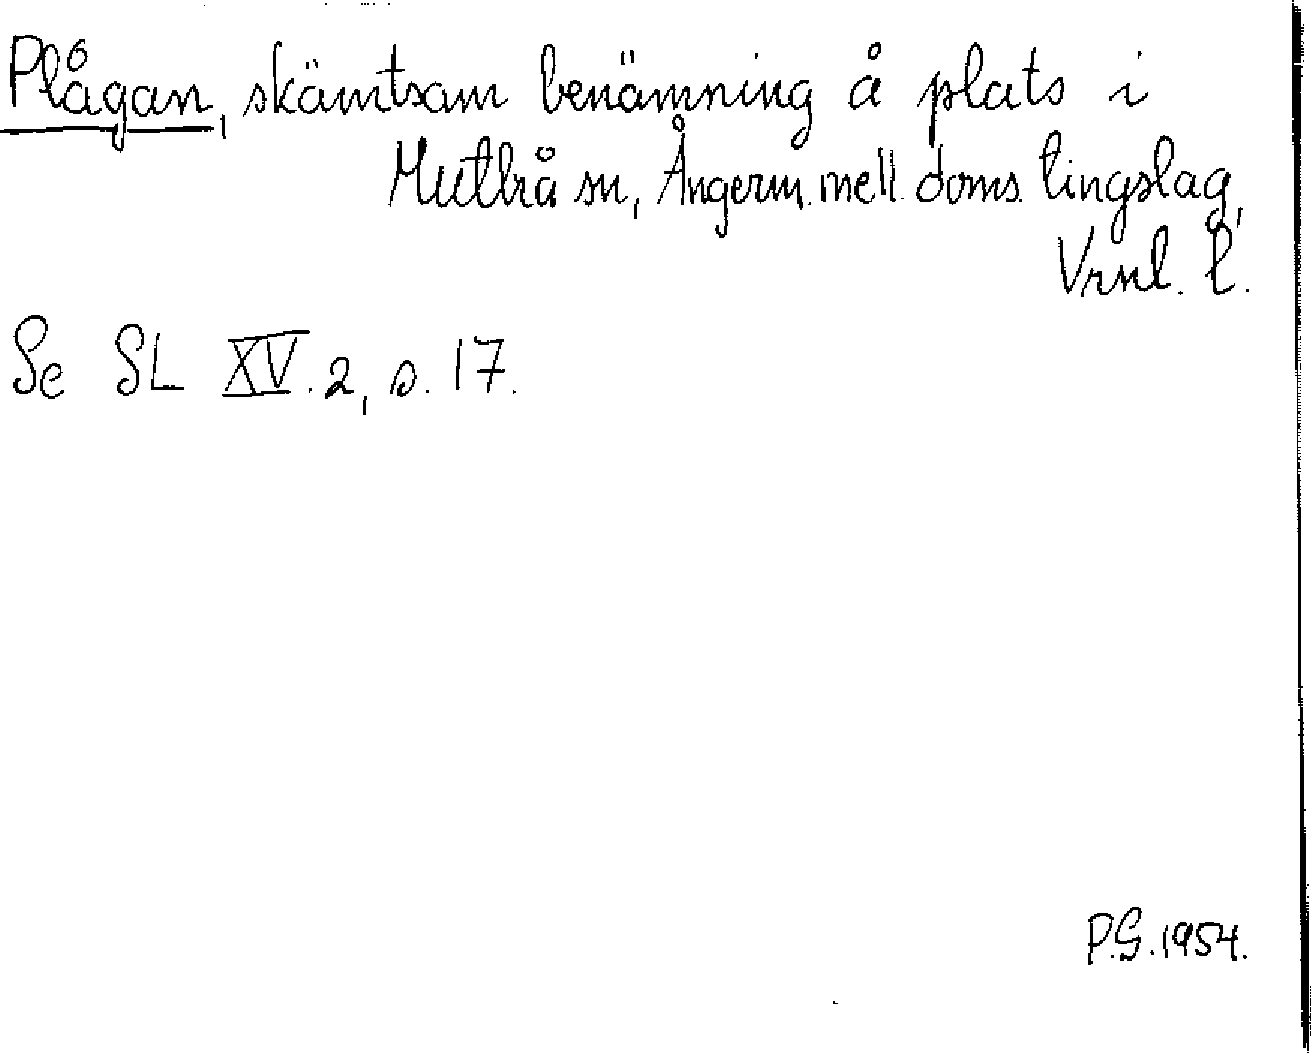 Plågan, skämtsam benämning å plats i
Hutbrå sn, Ångerm. mell. doms. tingslag,
Vrnl. l.
Se SL XV. 2, s. 17.
P.G. 1954.